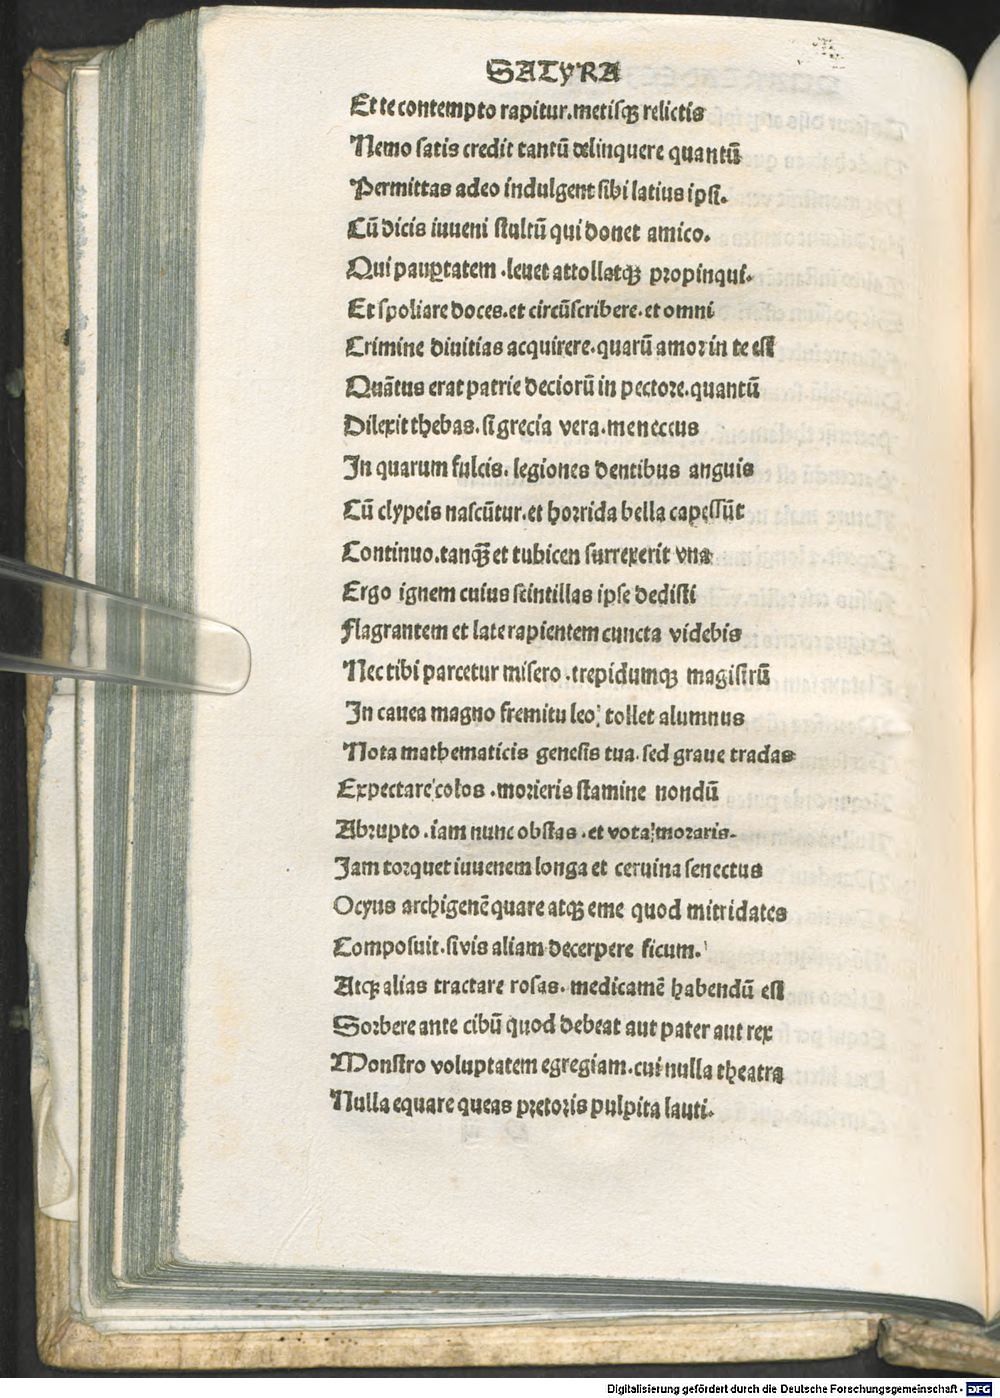 SATYRA
Et te contempto rapitur.metisqꝫ relictis
Nemo satis credit tantū delinquere quantū
Permittas adeo indulgent sibi latius ipsi.
Cū dicis iuueni stultū qui donet amico.
Qui pauꝑtatem .leuet attollatqꝫ propinqui.
Et spoliare doces.et circūscribere.et omni
Crimine diuitias acquirere.quarū amor in te est
Quātus erat patrie deciorū in pectore.quantū
Dilexit thebas.si grecia vera.meneceus
In quarum sulcis.legiones dentibus anguis
Cū clypeis nascūtur.et horrida bella capessūt
Continuo.tanqꝫ̄ et tubicen surrexerit vna
Ergo ignem cuius scintillas ipse dedisti
flagrantem et late rapientem cuncta videbis
Nec tibi parcetur misero .trepidumqꝫ magistrū
In cauea magno fremitu leo tollet alumnus
Nota mathematicis genesis tua.sed graue tradas
Expectare colos .morieris stamine nondū
Abrupto .iam nunc obstas .et vota moraris.
Jam torquet iuuenem longa et ceruina senectus
Ocyus archigenē quare atqꝫ eme quod mitridates
Composuit.si vis aliam decerpere ficum.
Atqꝫ alias tractare rosas.medicamē habendū est
Sorbere ante cibū quod debeat aut pater aut rex
Monstro voluptatem egregiam.cui nulla theatra
Nulla equare queas pretoris pulpita lauti.
Digitalisierung gefördert durch die Deutsche Forschungsgemeinschaft - DFG